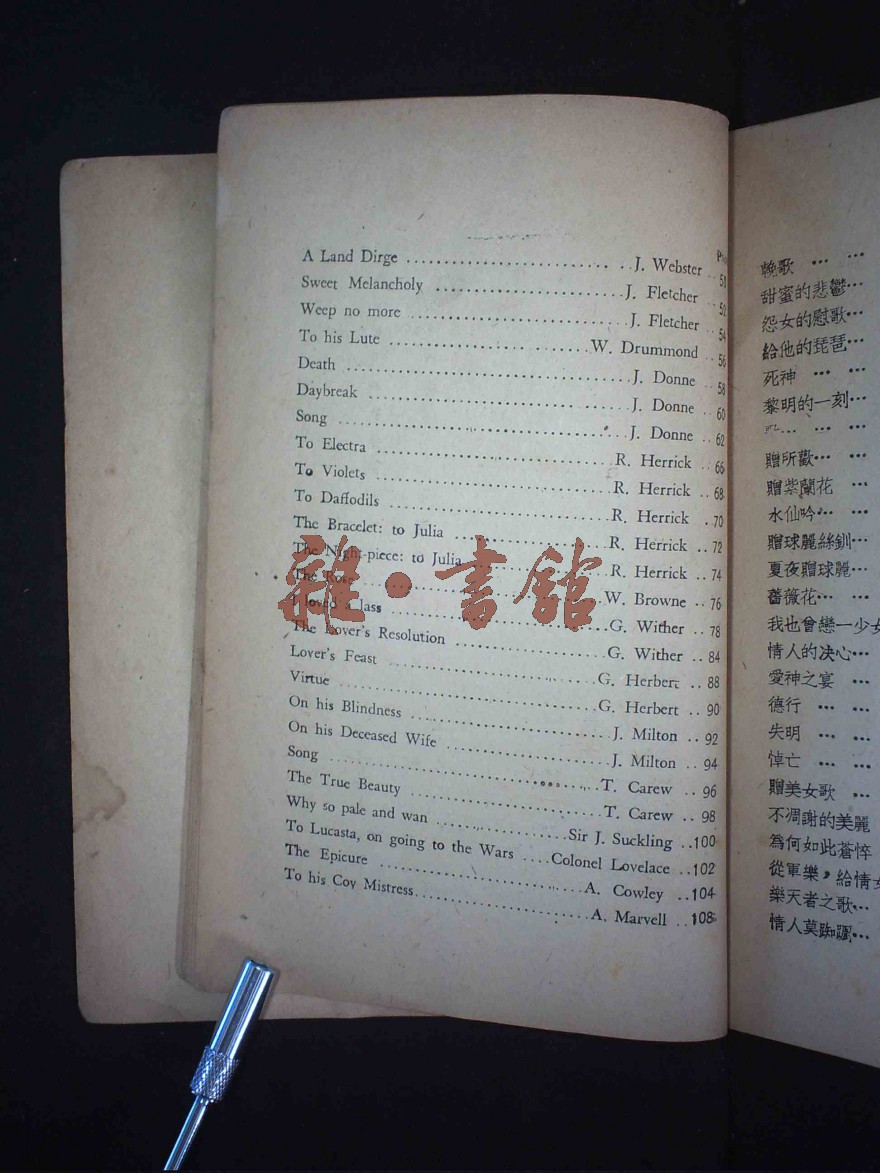 A Land Dirge .......... J. Webster
Sweet Melancholy .......... J. Fletcher .. 52
Weep no more .......... J. Fletcher .. 54
To his Lute .......... W. Drummond .. 56
Death .......... J. Donne .. 58
Daybreak .......... J. Donne .. 60
Song .......... J. Donne .. 62
To Electra .......... R. Herrick .. 66
To Violets .......... R. Herrick .. 68
To Daffodils .......... R. Herrick .. 70
The Bracelet: to Julia .......... R. Herrick .. 72
The Night-piece: to Julia .......... R. Herrick .. 74
The Rose .......... W. Browne .. 76
I loved a lass .......... G. Wither .. 78
The Lover's Resolution .......... G. Wither .. 84
Lover's Feast .......... G. Herbert .. 88
Virtue .......... G. Herbert .. 90
On his Blindness .......... J. Milton .. 92
On his Deceased Wife .......... J. Milton .. 94
Song .......... T. Carew .. 96
The True Beauty .......... T. Carew .. 98
Why so pale and wan .......... Sir J. Suckling ..100
To Lucasta, on going to the Wars ....Colonel Lovelace ..102
The Epicure .......... A. Cowley ..104
To his Coy Mistress.......... A. Marvell ..108
雜·書館
輓歌 … …
甜蜜的悲鬱…
怨女的慰歌…
給他的琵琶…
死神 … …
黎明的一刻…
贈所歡… …
贈紫蘭花 …
水仙吟… …
贈球麗絲釧…
夏夜贈球麗…
薔薇花… …
我也曾戀一少女
情人的決心…
愛神之宴 …
德行 … …
失明 … …
悼亡 … …
贈美女歌 …
不凋謝的美麗
為何如此蒼悴
從軍樂，給情女
樂天者之歌…
情人莫踟躕…